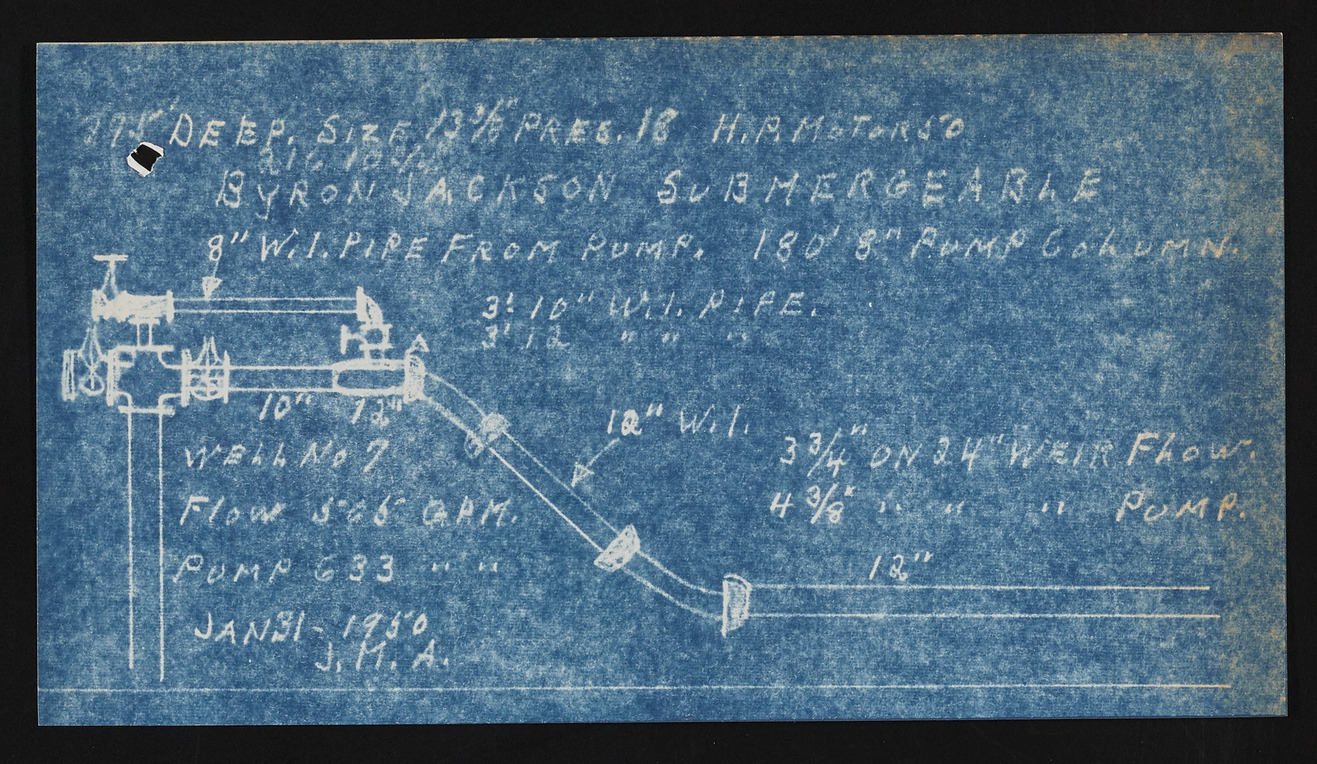 DEEP. SIZE 13 3/8" PREE. 18 H.P. MOTOR 50
BYRON JACKSON SUBMERGEABLE
8" W.I. PIPE FROM PUMP. 180' 8" PUMP COLUMN.
3' 10" W.I. PIPE.
3' 12 " " "
10" 12"
12" W.I.
WELL NO 7
3 3/4" ON 24" WEIR FLOW.
4 3/8" " " " PUMP.
FLOW 505 GPM.
PUMP 633 " "
12"
JAN 31 - 1950
J. M. A.